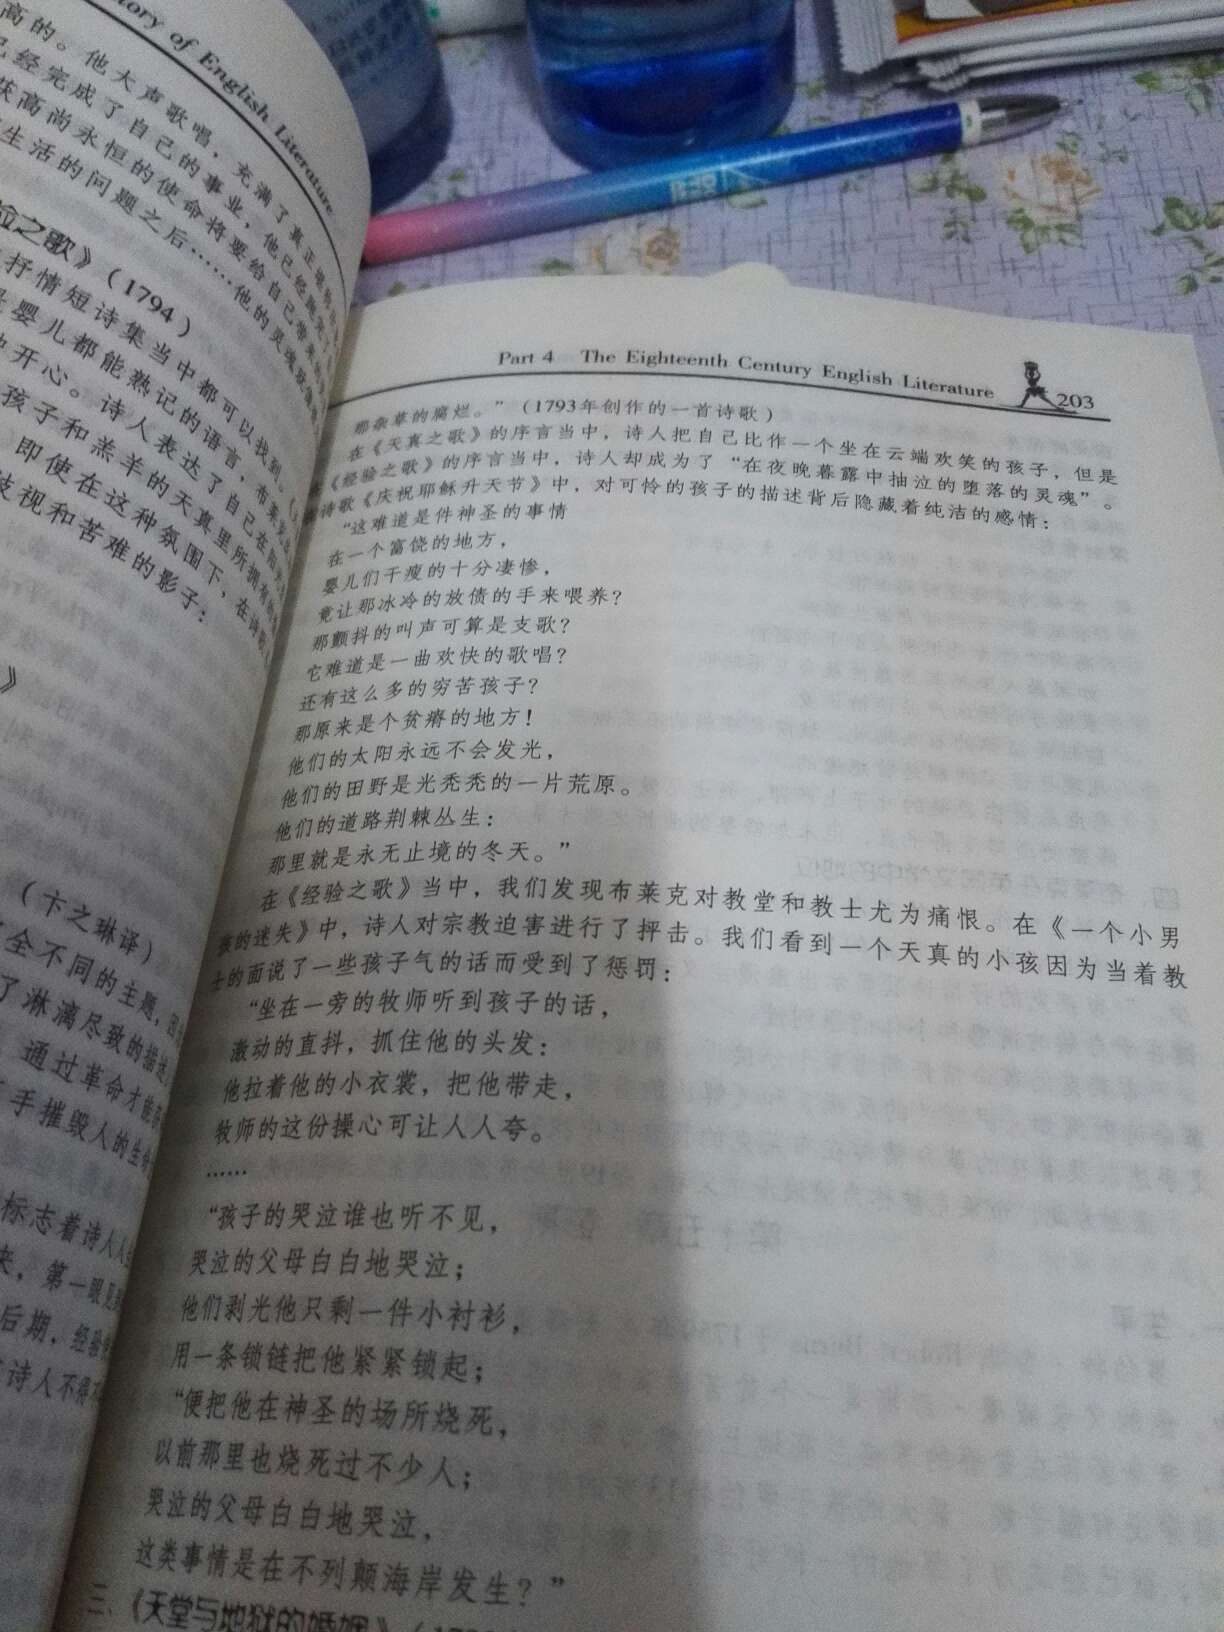 tory of English Literature
高的。他大声歌唱，充满了真正
已经完成了自己的事业，他已经
高尚永恒的使命将要给自己带来
生活的问题之后……他的灵魂
验之歌》(1794)
抒情短诗集当中都可以找到。
婴儿都能熟记的语言，布莱克
开心。诗人表达了自己在
孩子和羔羊的天真里所拥有的
即使在这种氛围下，在诗
歧视和苦难的影子：
》
（卞之琳译）
全不同的主题，
了淋漓尽致的描述
通过革命才能
手摧毁人的生
标志着诗人人
来，第一眼见
后期，经验
诗人不得
Part 4 The Eighteenth Century English Literature 203
那杂草的腐烂。”（1793年创作的一首诗歌）
在《天真之歌》的序言当中，诗人把自己比作一个坐在云端欢笑的孩子，但是
《经验之歌》的序言当中，诗人却成为了“在夜晚暮露中抽泣的堕落的灵魂”。
诗歌《庆祝耶稣升天节》中，对可怜的孩子的描述背后隐藏着纯洁的感情：
“这难道是件神圣的事情
在一个富饶的地方，
婴儿们干瘦的十分凄惨，
竟让那冰冷的放债的手来喂养？
那颤抖的叫声可算是支歌？
它难道是一曲欢快的歌唱？
还有这么多的穷苦孩子？
那原来是个贫瘠的地方！
他们的太阳永远不会发光，
他们的田野是光秃秃的一片荒原。
他们的道路荆棘丛生：
那里就是永无止境的冬天。”
在《经验之歌》当中，我们发现布莱克对教堂和教士尤为痛恨。在《一个小男
孩的迷失》中，诗人对宗教迫害进行了抨击。我们看到一个天真的小孩因为当着教
士的面说了一些孩子气的话而受到了惩罚：
“坐在一旁的牧师听到孩子的话，
激动的直抖，抓住他的头发：
他拉着他的小衣裳，把他带走，
牧师的这份操心可让人人夸。
……
“孩子的哭泣谁也听不见，
哭泣的父母白白地哭泣；
他们剥光他只剩一件小衬衫，
用一条锁链把他紧紧锁起；
“便把他在神圣的场所烧死，
以前那里也烧死过不少人；
哭泣的父母白白地哭泣，
这类事情是在不列颠海岸发生？”
三、《天堂与地狱的婚姻》